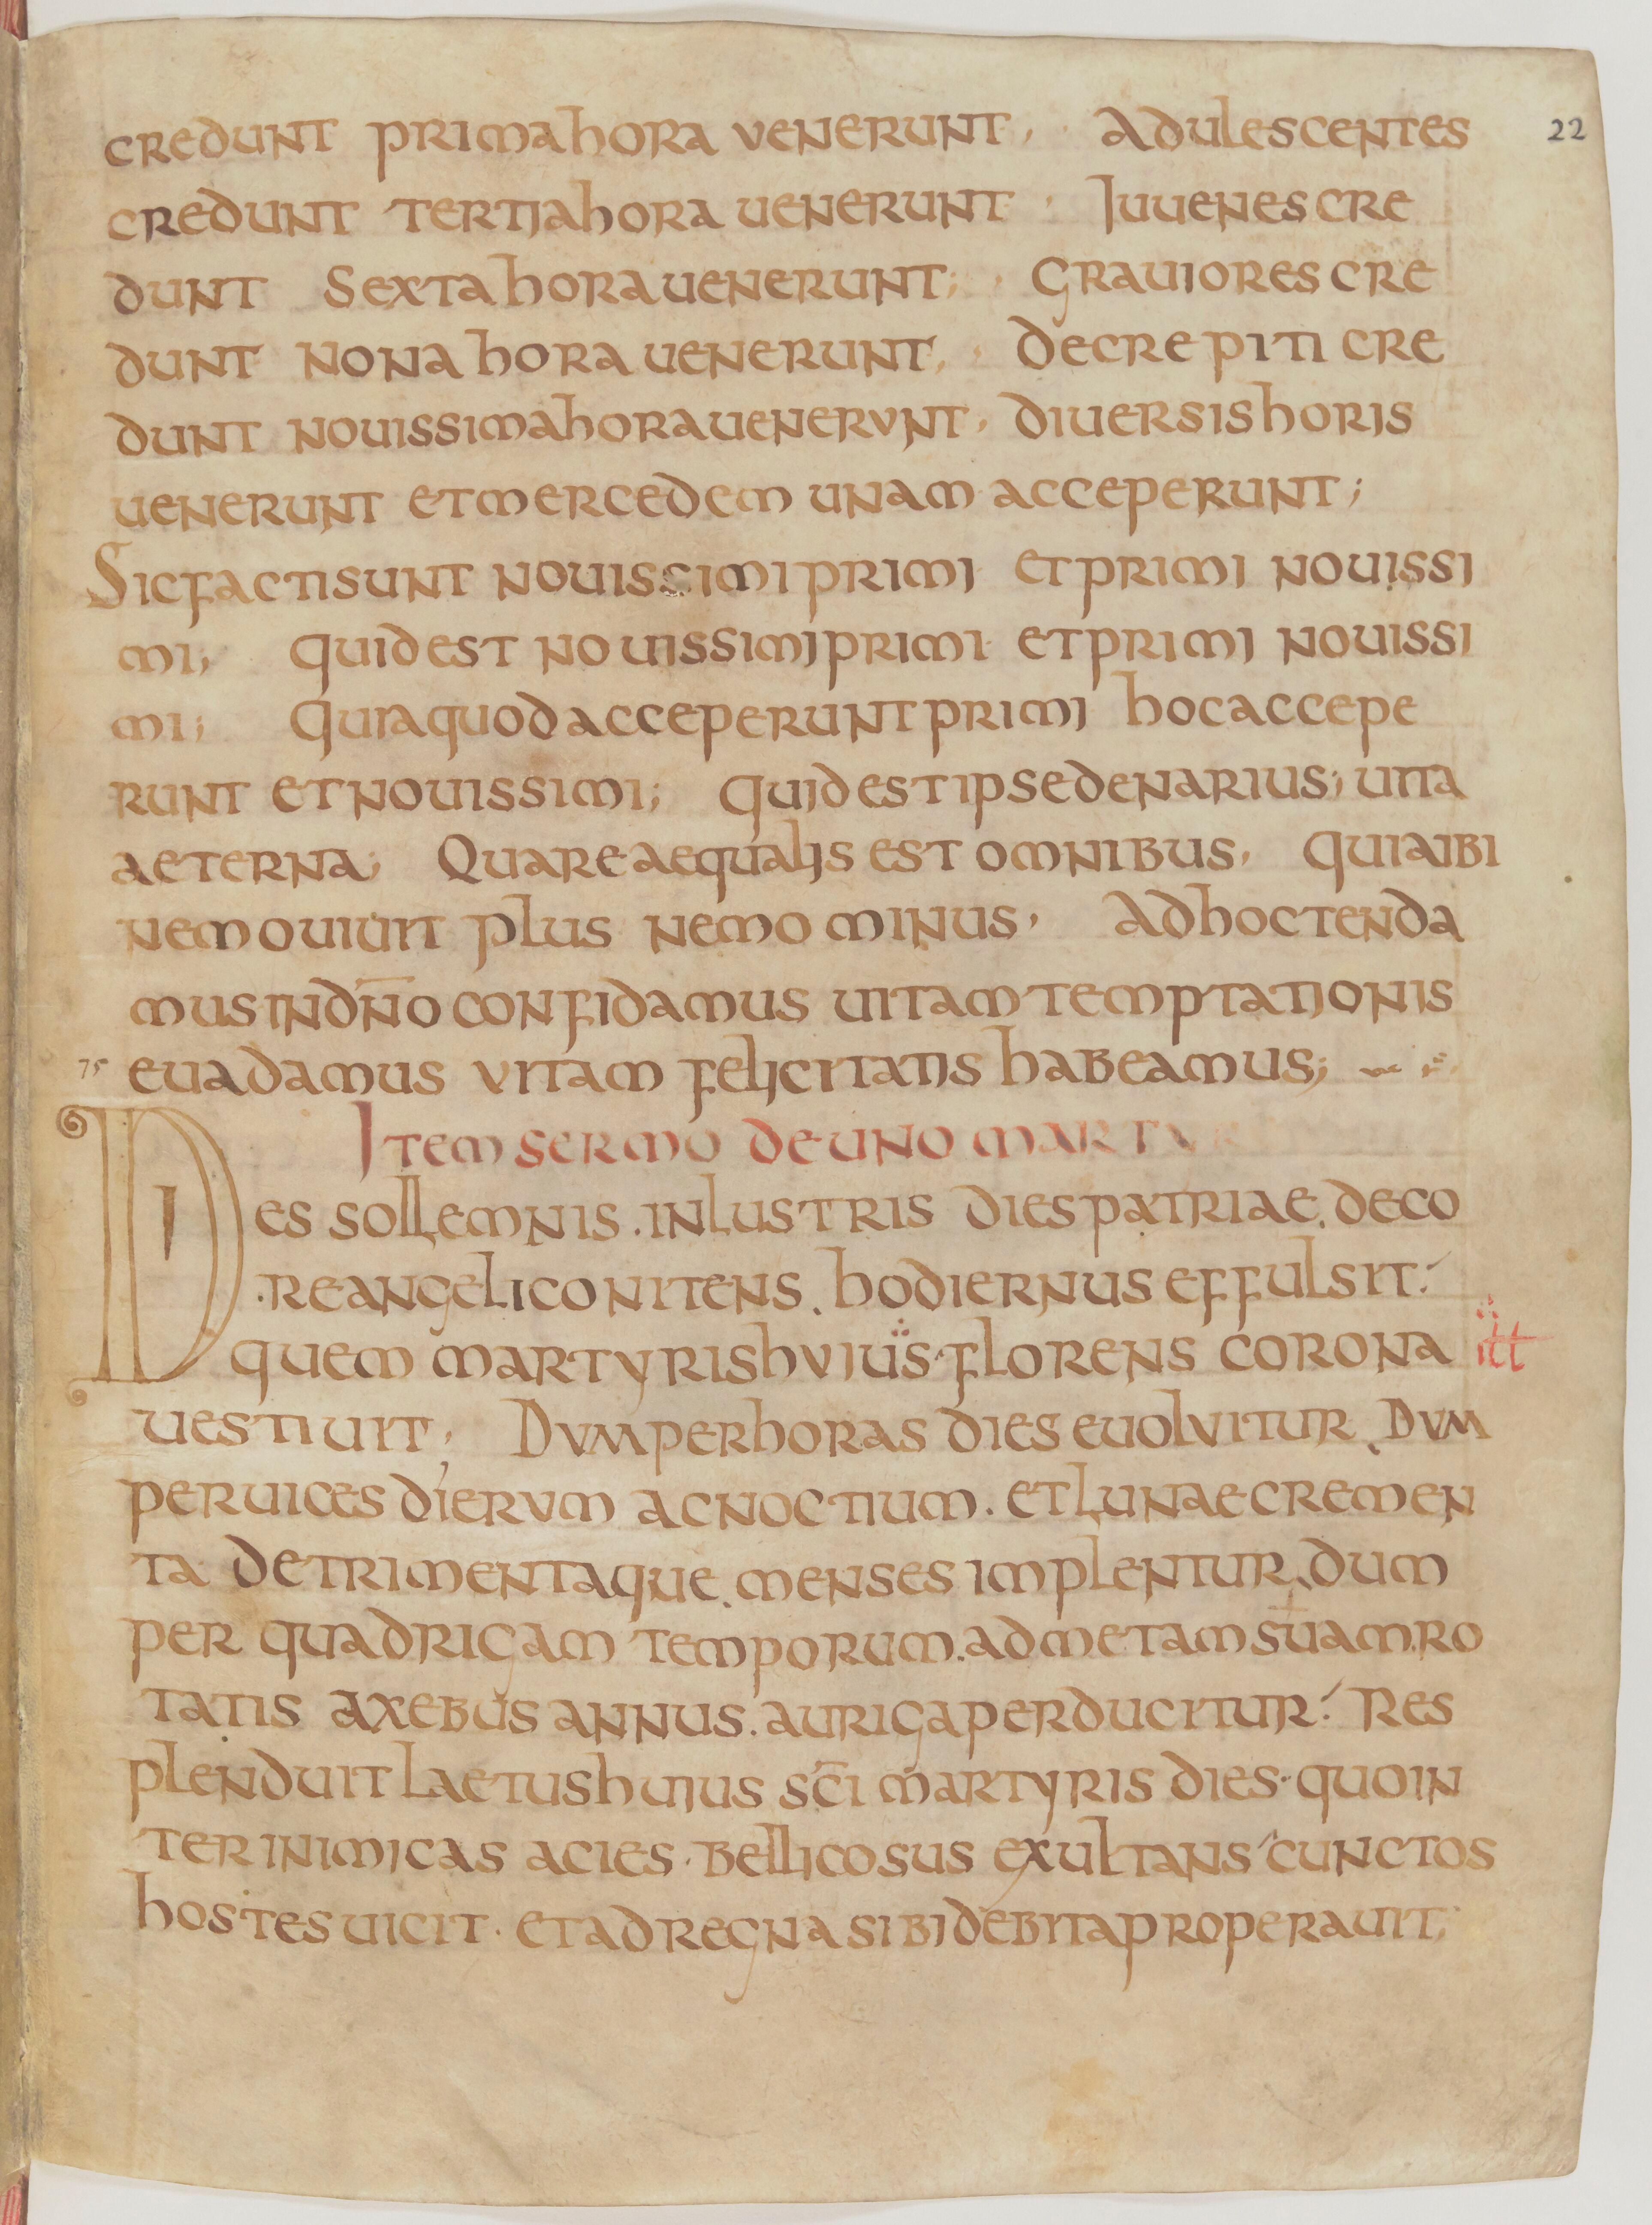 credunt prima hora venerunt, · Adulescentes
22
credunt tertia hora uenerunt · Iuuenes cre
dunt Sexta hora uenerunt; · Grauiores cre
dunt nona hora uenerunt, · Decrepiti cre
dunt nouissima hora uenervnt, diuersis horis
uenerunt et mercedem unam acceperunt;
Sic facti sunt nouissimi primi et primi nouissi
mi, quid est nouissimi primi et primi nouissi
mi; Quia quod acceperunt primi hoc accepe
runt et nouissimi; Quid est ipse denarius; uita
aeterna; Quare aequalis est omnibus, Quia ibi
nemo uiuit plus nemo minus, Ad hoc tenda
mus in dn̄o confidamus uitam temptationis
euadamus vitam felicitatis habeamus;
Item sermo de uno martyr
Dies sollemnis. inlustris dies patriae. deco
re angelico nitens. hodiernus effulsit:
quem martyris hvius florens corona
uestiuit; Dvm per horas dies euolvitur. Dvm
per uices diervm ac noctium. et lunae cremen
ta detrimentaque. menses implentur. dum
per quadrigam temporum. ad metam suam. ro
tatis axebus annus. auriga perducitur: Res
plenduit laetus huius sc̄i martyris dies. quo in
ter inimicas acies. bellicosus exultans cunctos
hostes uicit. et ad regna sibi debita properauit;